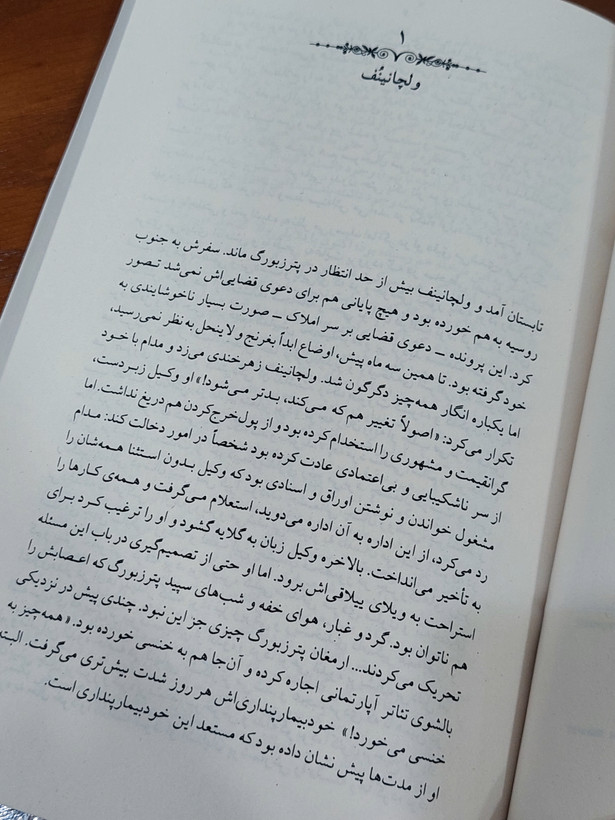 ۱
ولچانینُف
تابستان آمد و ولچانینف بیش از حد انتظار در پترزبورگ ماند. سفرش به جنوب
روسیه به هم خورده بود و هیچ پایانی هم برای دعوی قضایی‌اش نمی‌شد تصور
کرد. این پرونده ــ دعوی قضایی بر سر املاک ــ صورت بسیار ناخوشایندی به
خود گرفته بود. تا همین سه ماه پیش، اوضاع ابداً بغرنج و لاینحل به نظر نمی‌رسید،
اما یکباره انگار همه‌چیز دگرگون شد. ولچانینف زهرخندی می‌زد و مدام با خود
تکرار می‌کرد: «اصولاً تغییر هم که می‌کند، بدتر می‌شود!» او وکیل زبردست،
گرانقیمت و مشهوری را استخدام کرده بود و از پول‌خرج‌کردن هم دریغ نداشت. اما
از سر ناشکیبایی و بی‌اعتمادی عادت کرده بود شخصاً در امور دخالت کند: مدام
مشغول خواندن و نوشتن اوراق و اسنادی بود که وکیل بدون استثنا همه‌شان را
رد می‌کرد، از این اداره به آن اداره می‌دوید، استعلام می‌گرفت و همه‌ی کارها را
به تأخیر می‌انداخت. بالاخره وکیل زبان به گلایه گشود و او را ترغیب کرد برای
استراحت به ویلای ییلاقی‌اش برود. اما او حتی از تصمیم‌گیری در باب این مسئله
هم ناتوان بود. گرد و غبار، هوای خفه و شب‌های سپید پترزبورگ که اعصابش را
تحریک می‌کردند... ارمغان پترزبورگ چیزی جز این نبود. چندی پیش در نزدیکی
بالشوی تئاتر آپارتمانی اجاره کرده و آن‌جا هم به خنسی خورده بود. «همه‌چیز به
خنسی می‌خورد!» خودبیمارپنداری‌اش هر روز شدت بیش‌تری می‌گرفت.
او از مدت‌ها پیش نشان داده بود که مستعد این خودبیمارپنداری است.